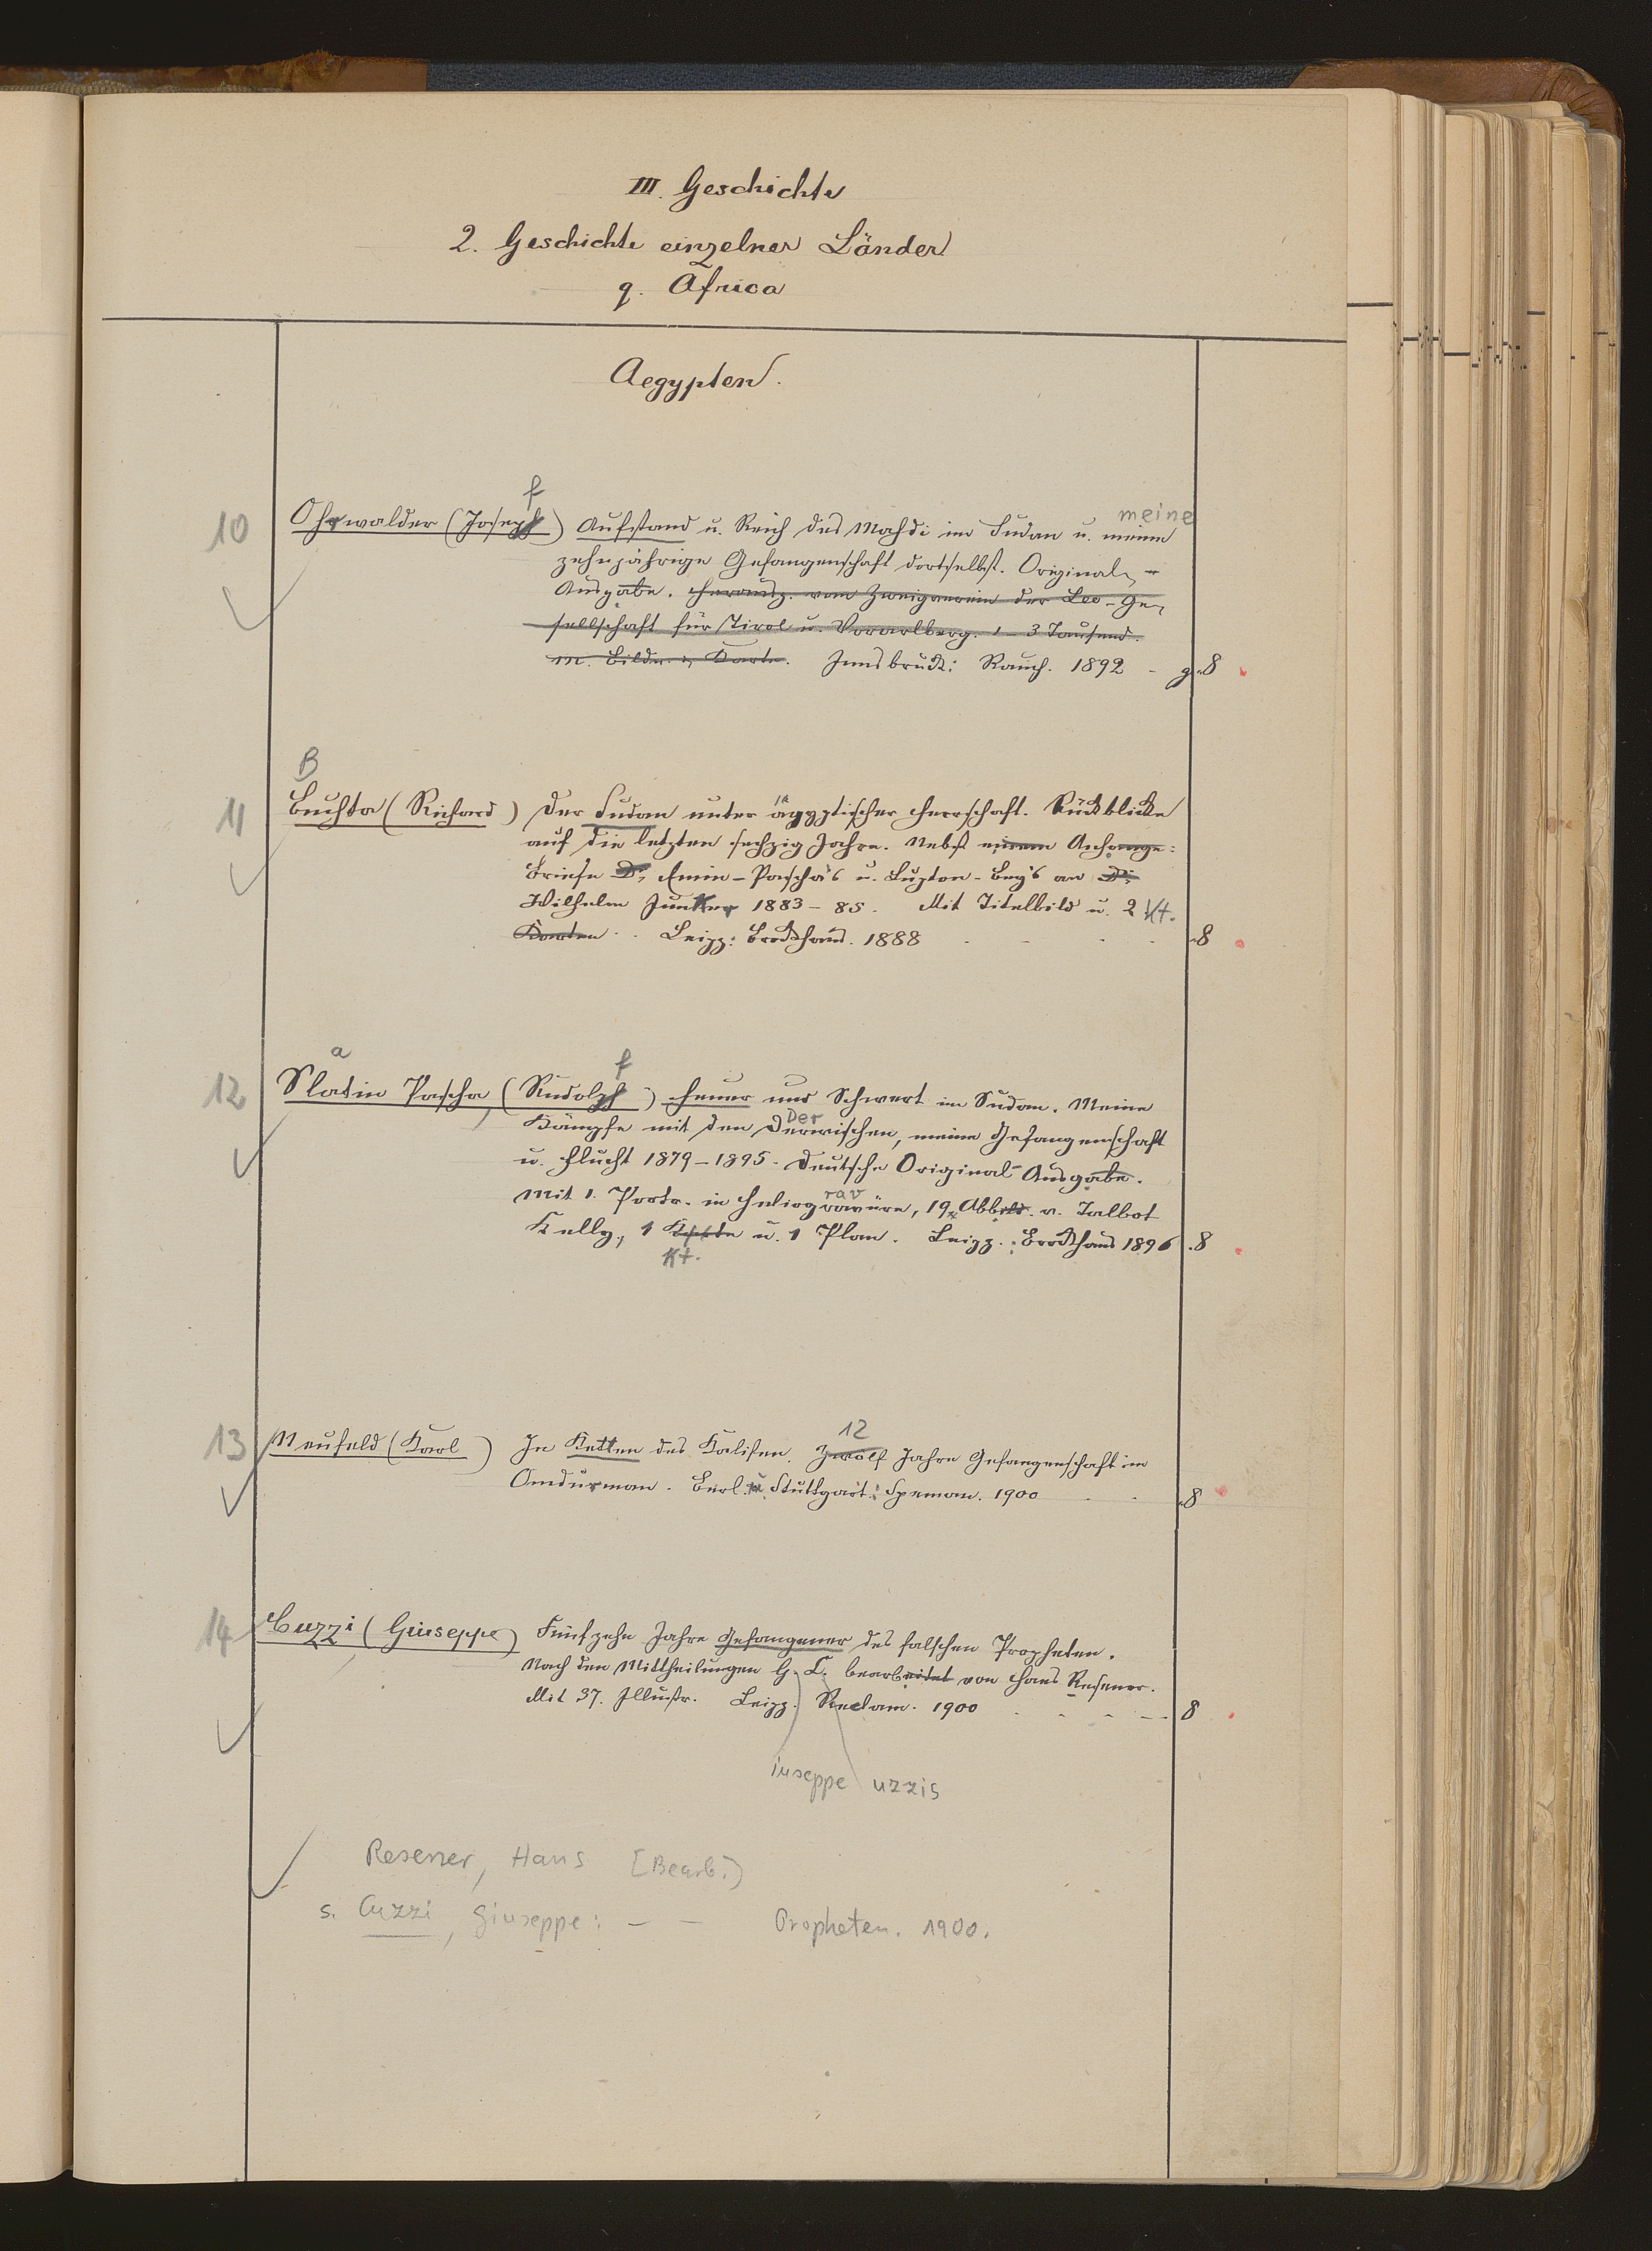 III. Geschichte
2. Geschichte einzelner Länder
q. Africa
Aegypten.
f
meine
10 Ohrwalder (Joseph) Aufstand u. Reich des Mahdi im Sudan u. meine
zehnjährige Gefangenschaft dortselbst. Original-
Ausgabe. Herausg. vom Zweigverein der Leo-Ge-
sellschaft für Tirol u. Vorarlberg. 1-3 Tausend.
M. Bildn. u. Karte. Innsbruck: Rauch. 1892 - g. 8
B
11 Buchta (Richard) Der Sudan unter ägyptischer Herrschaft. Rückblicke
auf die letzten sechzig Jahre. Nebst einem Anhange:
Briefe Dr. Emin-Pascha's u. Lupton-Bey's an Dr.
Wilhelm Junker 1883-85. Mit Titelbild u. 2 Kt.
Karten. Leipz: Brockhaus. 1888 8
a
f
12 Slatin Pascha, (Rudolph) Feuer und Schwert im Sudan. Meine
Der
Kämpfe mit den Derwischen, meine Gefangenschaft
u. Flucht 1879-1895. Deutsche Original-Ausgabe.
rav
Mit 1. Portr. in Heliogravüre, 19 Abbild. v. Talbot
Kelly, 1 Karte u. 1 Plan. Leipz.: Brockhaus 1896. 8
Kt.
12
13 Neufeld (Karl) In Ketten des Kalifen. Zwölf Jahre Gefangenschaft in
Omdurman. Berl. u. Stuttgart: Speman. 1900 8
14 Cuzzi (Giuseppe) Fünfzehn Jahre Gefangener des falschen Propheten.
Nach den Mittheilungen G. C. bearbeitet von Hans Resener.
Mit 37. Illustr. Leipz. Reclam. 1900 8
iuseppe uzzis
Resener, Hans [Bearb.]
s. Cuzzi, Giuseppe: - - Propheten. 1900.